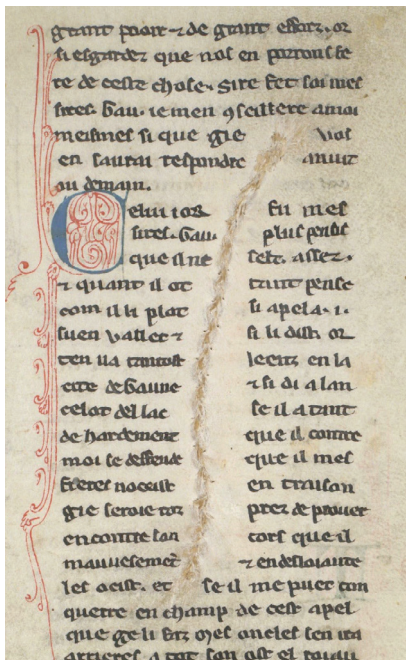 grant pooir ⁊ de grant esforz. or
si esgardez que nos en porrons fe
re de ceste chose. Sire fet soi mes
sires. Gau. ie men ꝯseillere a moi
meismes si que gie vos
en saurai respondre anuit
ou demain.
Celui ior fu mes
sires. Gau. plus pensis
que il ne selt. assez.
⁊ quant il ot tant pense
com il li plot si apela .i.
suen vallet ⁊ si li dist. or
ten ua tantost leenz en la
cite de Gaune ⁊ si di a lan
celot del lac se il a tant
de hardement que il contre
moi se deffende que il mes
freres noceist en traison
gie seroie toz prez de prouer
encontre son cors que il
mauuesement ⁊ en desloiaute
les ocist. et se il me puet con
querre en champ de cest apel
que ge li faz mes oncles sen ira
arrieres a tot son ost el roiau